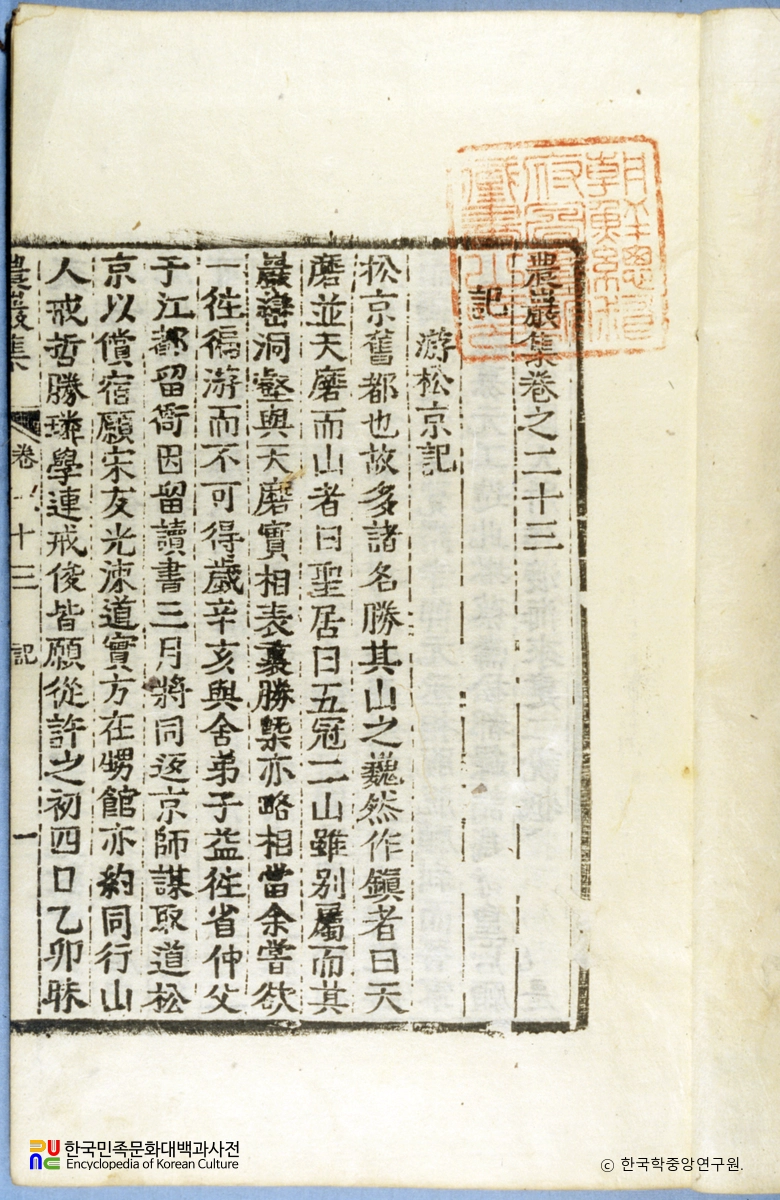 農巖集卷之二十三
記
游松京記
松京舊都也故多諸名勝其山之巍然作鎭者曰天
磨並天磨而山者曰聖居曰五冠二山雖别屬而其
巖巒洞壑與天磨實相表裏勝槩亦略相當余嘗欲
一徃徧游而不可得歲辛亥與舍弟子益徃省仲父
于江都留衙因留讀書三月將同返京師謀取道松
京以償宿願宋友光涑道實方在甥館亦約同行山
人戒哲勝璘學連戒俊皆願從許之初四日乙卯昧
農巖集
卷 十三
記
一
朝鮮總督
府
藏書之
한국민족문화대백과사전
Encyclopedia of Korean Culture
ⓒ 한국학중앙연구원.